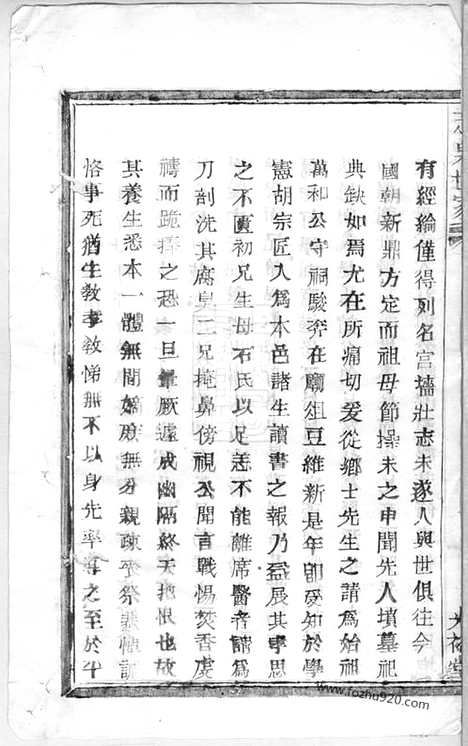 有經綸僅得列名宮墻壯志未遂人與世俱往今
國朝新鼎方定而祖母節操未之申聞先人墳墓祀
典缺如焉尤在所痛切爰從鄉士先生之請爲始祖
萬和公守祠駿奔在廟俎豆維新是年卽受知於學
憲胡宗匠入爲本邑諸生讀書之報乃益展其孝思
之不匱初兄生母石氏以足恙不能離席醫者議爲
刀剖洗其腐臭二兄掩鼻傍視公聞言戰惕焚香虔
禱而跪 之恐一旦暈厥遽成幽隔終天抱恨也故
其養生悉本一體無間嫡庶無分親疎 祭悲 訓
恪事死猶生敎孝敎悌無不以身先率 之至於平
世家
光裕堂
www.fozhu920.com